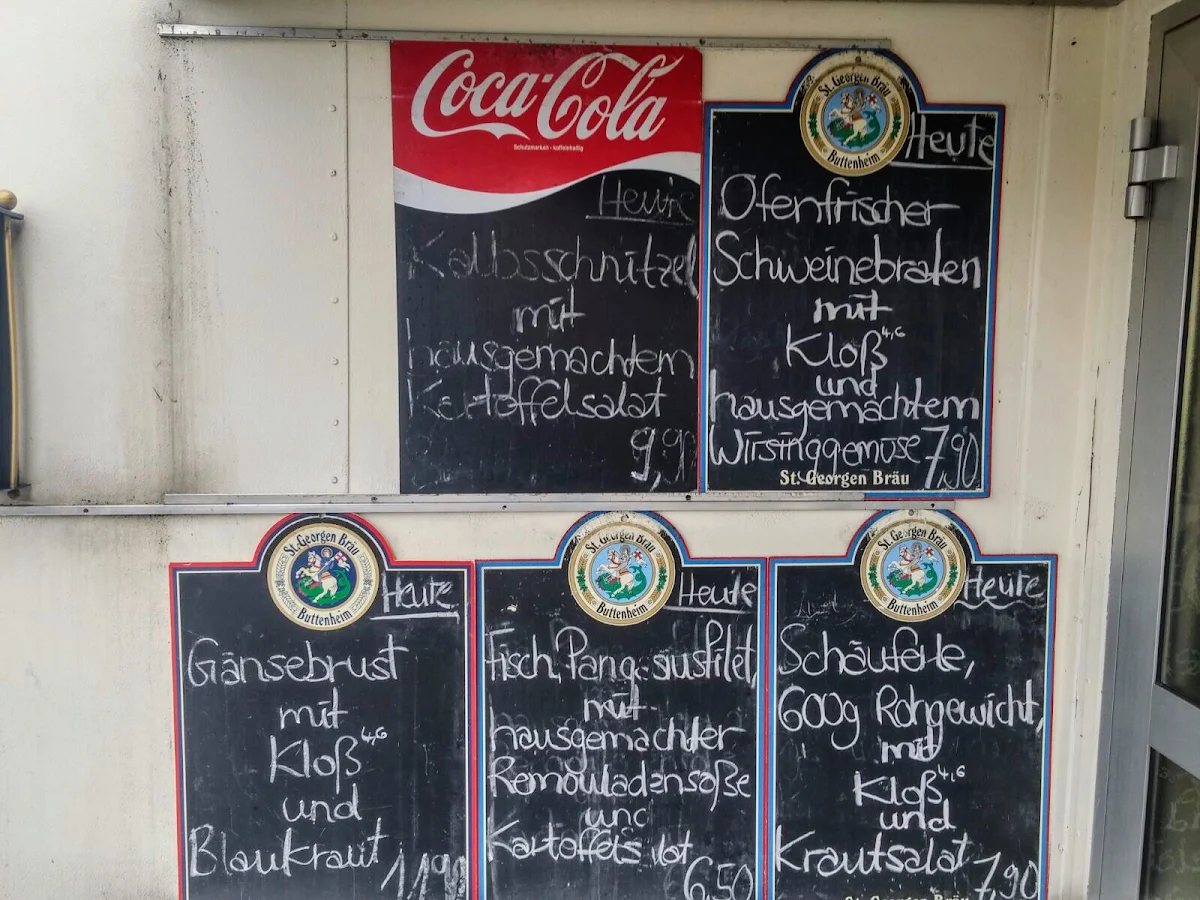 Coca-Cola
Schutzmarken - koffeinhaltig
Heute
Kalbsschnitzel
mit
hausgemachtem
Kartoffelsalat
9,90
St. Georgen Bräu
Buttenheim
Heute
Ofenfrischer
Schweinebraten
mit
Kloß 4,6
und
hausgemachtem
Wirsinggemüse 7,90
St. Georgen Bräu
St. Georgen Bräu
Buttenheim
Heute
Gänsebrust
mit
Kloß 4,6
und
Blaukraut 11,90
St. Georgen Bräu
Buttenheim
Heute
Fisch, Pangasiusfilet,
mit
hausgemachter
Remouladensoße
und
Kartoffelsalat
6,50
St. Georgen Bräu
Buttenheim
Heute
Schäuferle,
600g Rohgewicht,
mit
Kloß 4,6
und
Krautsalat 7,90
St. Georgen Bräu